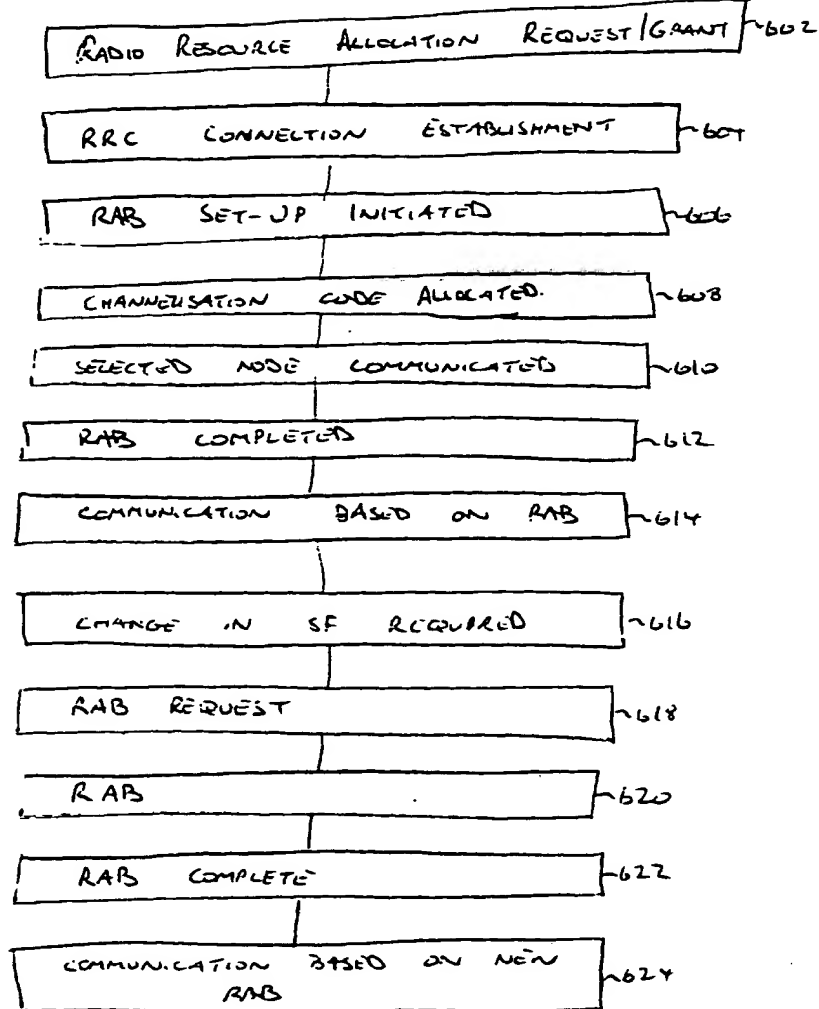 RADIO RESOURCE ALLOCATION REQUEST/GRANT 602
RRC CONNECTION ESTABLISHMENT 604
RAB SET-UP INITIATED 606
CHANNELISATION CODE ALLOCATED. 608
SELECTED NODE COMMUNICATED 610
RAB COMPLETED 612
COMMUNICATION BASED ON RAB 614
CHANGE IN SF REQUIRED 616
RAB REQUEST 618
RAB 620
RAB COMPLETE 622
COMMUNICATION BASED ON NEW
RAB 624